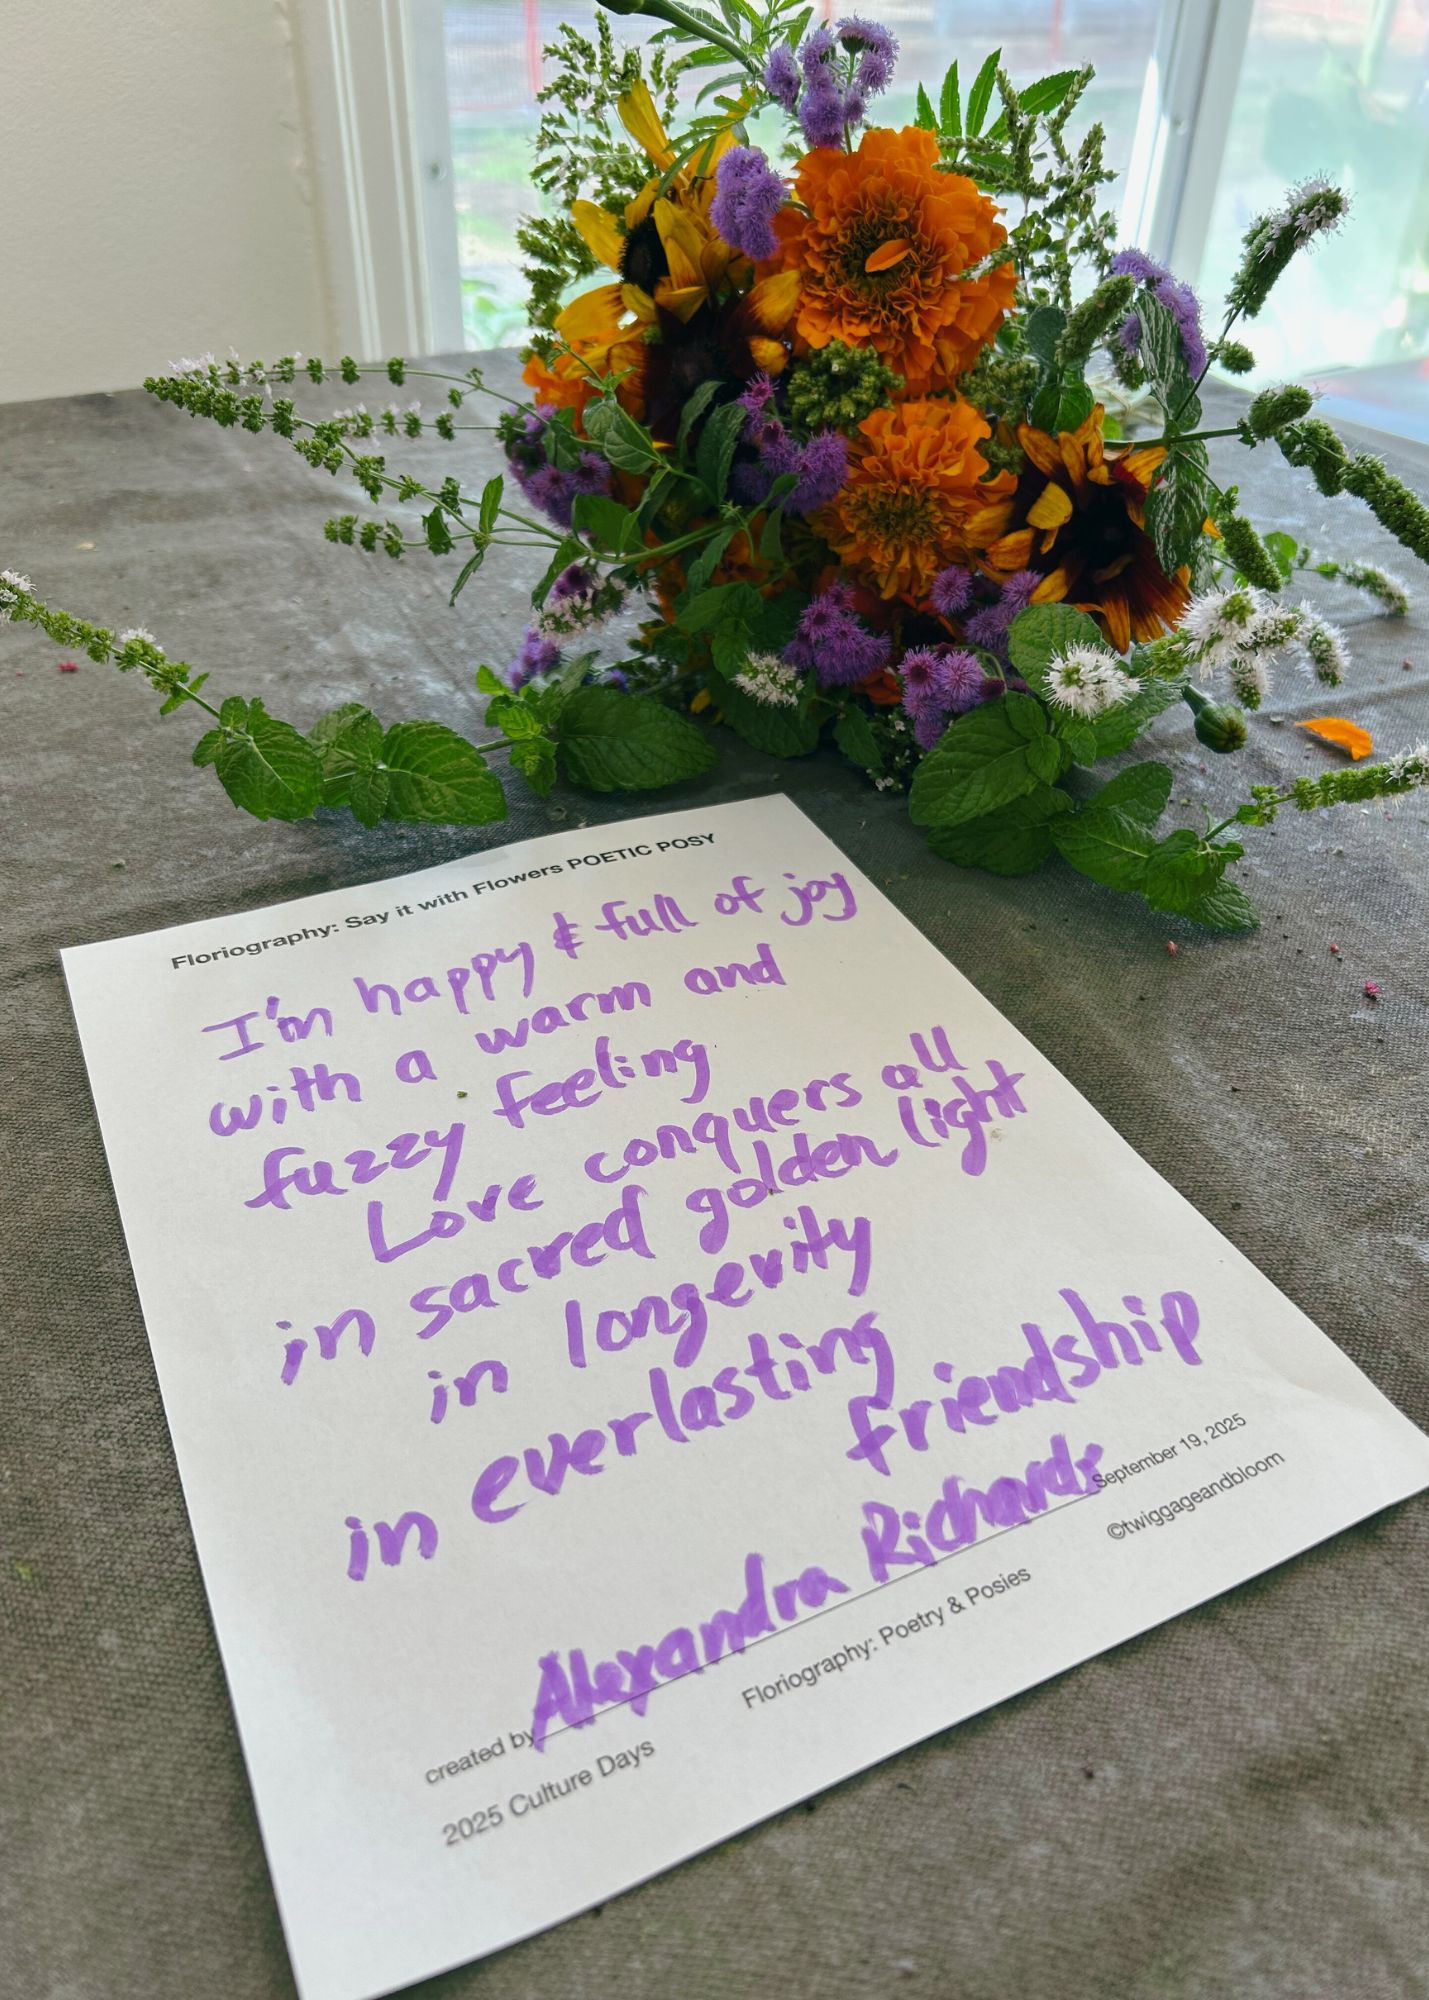 Floriography: Say it with Flowers POETIC POSY
I'm happy & full of joy
with a warm and
fuzzy feeling
Love conquers all
in sacred golden light
in longevity
in everlasting
friendship
created by Alexandra Richards September 19, 2025
2025 Culture Days Floriography: Poetry & Posies ©twiggageandbloom